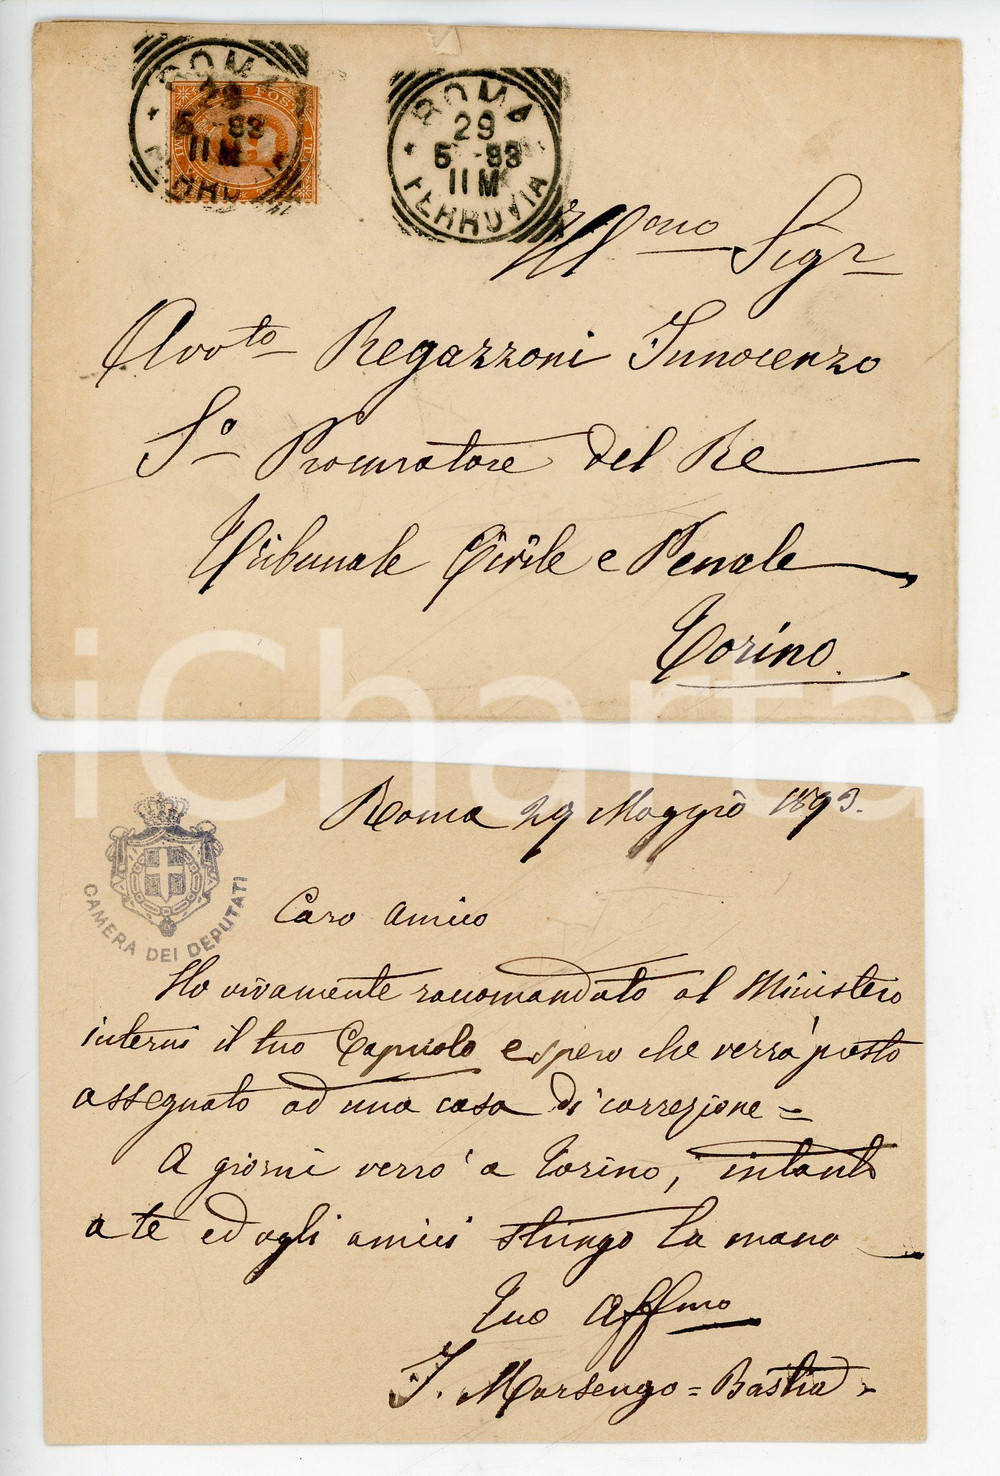 ROMA
29
5 - 93
11 M
ROMA
29
5 - 93
11 M
FERROVIA
Ill.mo Sigr
Avv.to Regazzoni Innocenzo
S.o Procuratore del Re
Tribunale Civile e Penale
Torino
iCharta
CAMERA DEI DEPUTATI
Roma 29 Maggio 1893.
Caro Amico
Ho vivamente raccomandato al Ministero
interni il tuo Capuolo e spero che verrà presto
assegnato ad una casa di correzione =
A giorni verrò a Torino, intanto
a te ed agli amici stringo la mano
Tuo Affmo
I. Marsengo = Bastia